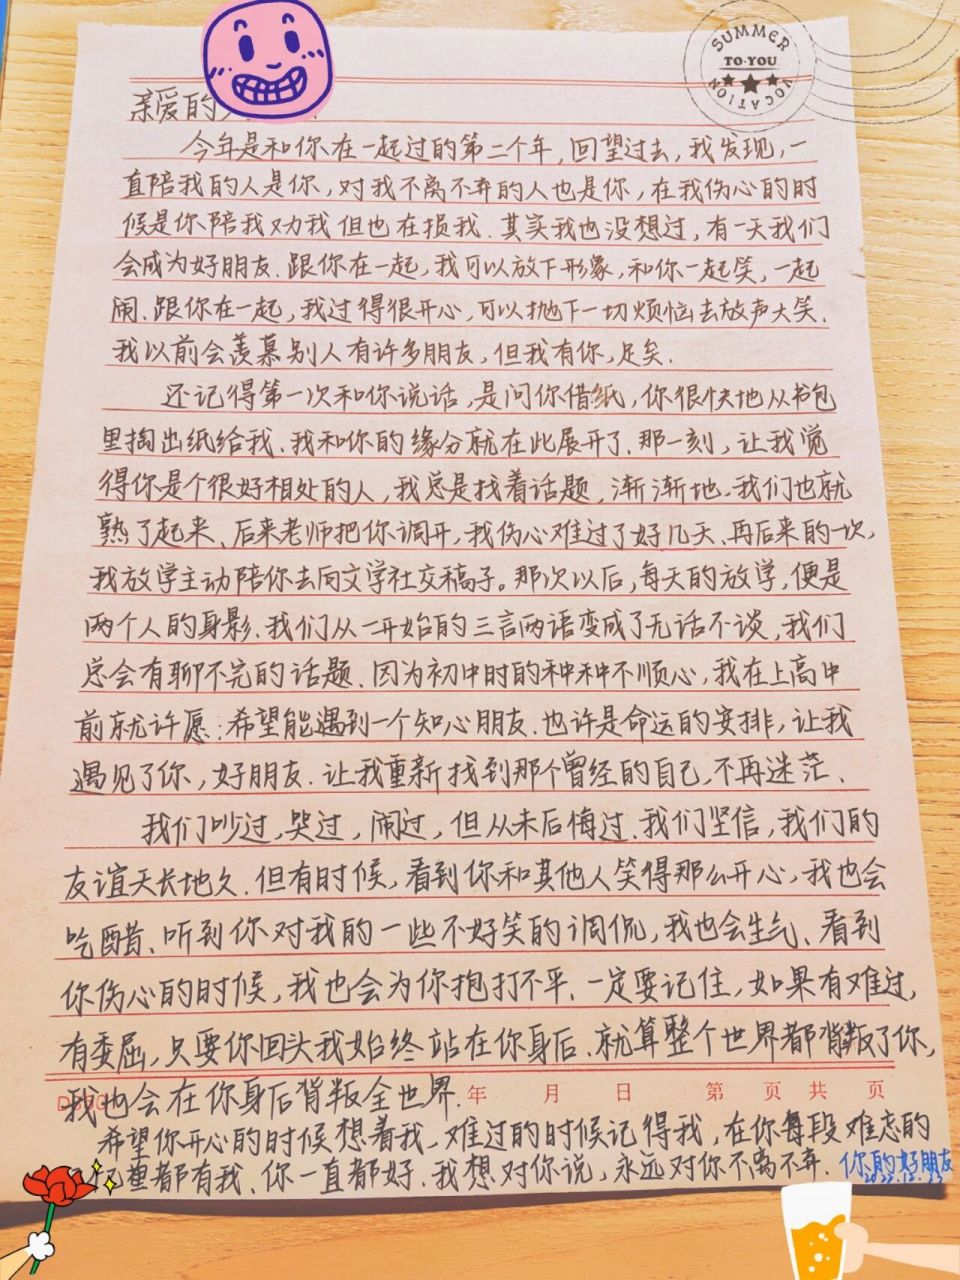 SUMMER
TO·YOU
VOCATION
亲爱的
今年是和你在一起过的第二个年,回望过去,我发现,一
直陪我的人是你,对我不离不弃的人也是你,在我伤心的时
候是你陪我劝我但也在损我.其实我也没想过,有一天我们
会成为好朋友.跟你在一起,我可以放下形象,和你一起笑,一起
闹.跟你在一起,我过得很开心,可以抛下一切烦恼去放声大笑.
我以前会羡慕别人有许多朋友,但我有你,足矣.
还记得第一次和你说话,是问你借纸,你很快地从书包
里掏出纸给我.我和你的缘分就在此展开了.那一刻,让我觉
得你是个很好相处的人,我总是找着话题,渐渐地.我们也就
熟了起来、后来老师把你调开,我伤心难过了好几天、再后来的一次,
我放学主动陪你去向文学社交稿子。那次以后,每天的放学,便是
两个人的身影.我们从一开始的三言两语变成了无话不谈,我们
总会有聊不完的话题.因为初中时的种种不顺心,我在上高中
前就许愿:希望能遇到一个知心朋友.也许是命运的安排,让我
遇见了你,好朋友.让我重新找到那个曾经的自己,不再迷茫、
我们吵过,哭过,闹过,但从未后悔过.我们坚信,我们的
友谊天长地久.但有时候,看到你和其他人笑得那么开心,我也会
吃醋、听到你对我的一些不好笑的调侃,我也会生气、看到
你伤心的时候,我也会为你抱打不平.一定要记住,如果有难过,
有委屈,只要你回头我始终站在你身后.就算整个世界都背叛了你,
我也会在你身后背叛全世界.
年 月 日 第 页 共 页
希望你开心的时候想着我、难过的时候记得我,在你每段难忘的
里都有我、你一直都好.我想对你说,永远对你不离不弃.你的好朋友
2022.12.23